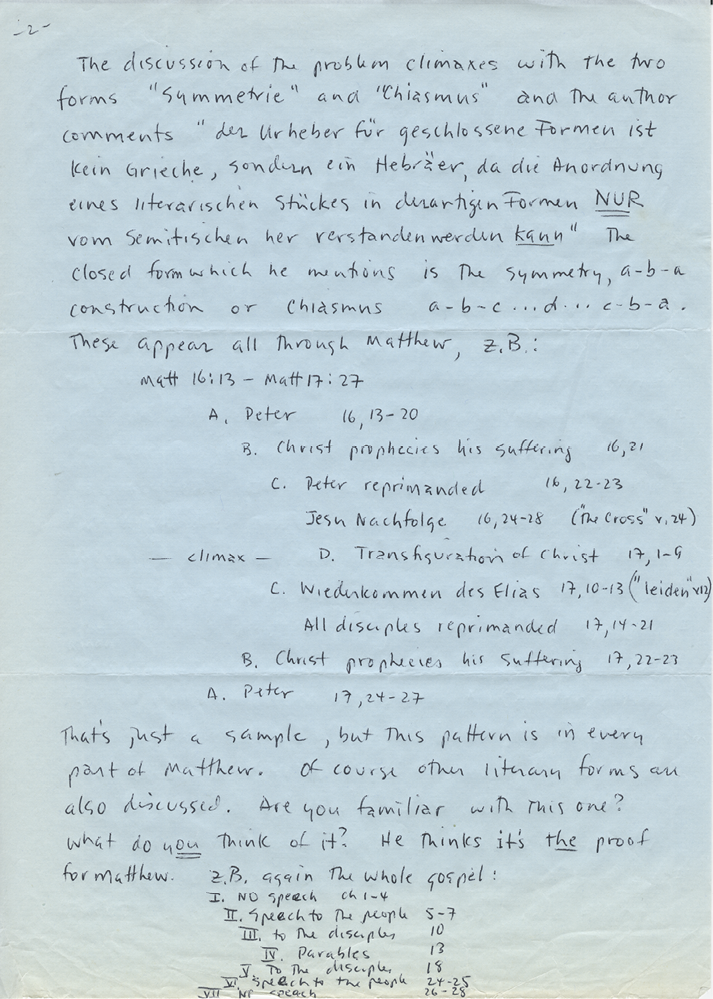 -2-
The discussion of the problem climaxes with the two
forms "Symmetrie" and "Chiasmus" and the author
comments "der Urheber für geschlossene Formen ist
kein Grieche, sondern ein Hebräer, da die Anordnung
eines literarischen Stückes in derartigen Formen NUR
vom Semitischen her verstanden werden kann" The
closed form which he mentions is the symmetry, a-b-a
construction or Chiasmus a-b-c...d...c-b-a.
These appear all through Matthew, z.B.:
Matt 16:13 - Matt 17:27
A. Peter 16,13-20
B. Christ prophecies his suffering 16,21
C. Peter reprimanded 16,22-23
Jesu Nachfolge 16,24-28 ("The Cross" v.24)
- climax - D. Transfiguration of Christ 17,1-9
C. Wiederkommen des Elias 17,10-13 ("leiden" v12)
All disciples reprimanded 17,14-21
B. Christ prophecies his suffering 17,22-23
A. Peter 17,24-27
That's just a sample, but this pattern is in every
part of Matthew. Of course other literary forms are
also discussed. Are you familiar with this one?
What do you think of it? He thinks it's the proof
for Matthew. z.B. again the whole gospel:
I. No speech ch 1-4
II. Speech to the people 5-7
III. to the disciples 10
IV. Parables 13
V. To the disciples 18
VI. Speech to the people 24-25
VII No speech 26-28